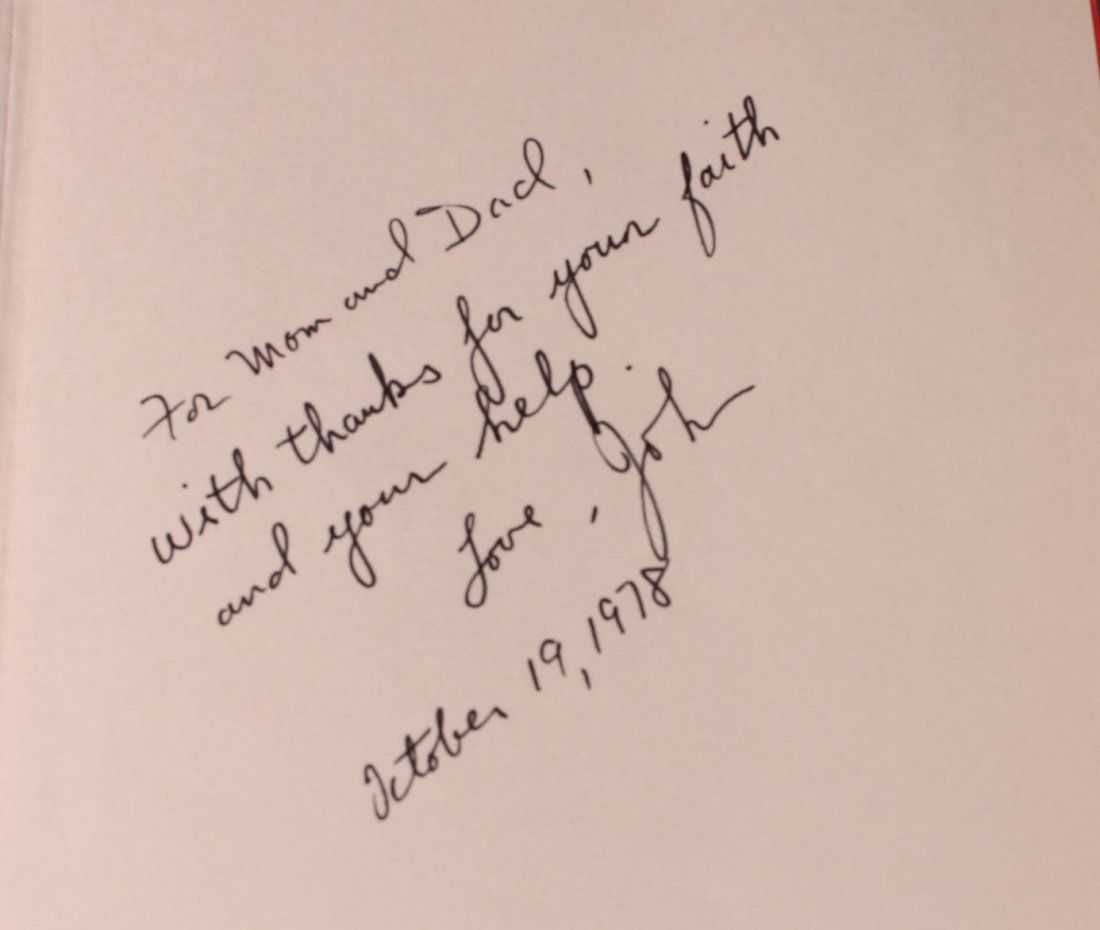 For Mom and Dad,
With thanks for your faith
and your help.
Love, John
October 19, 1978